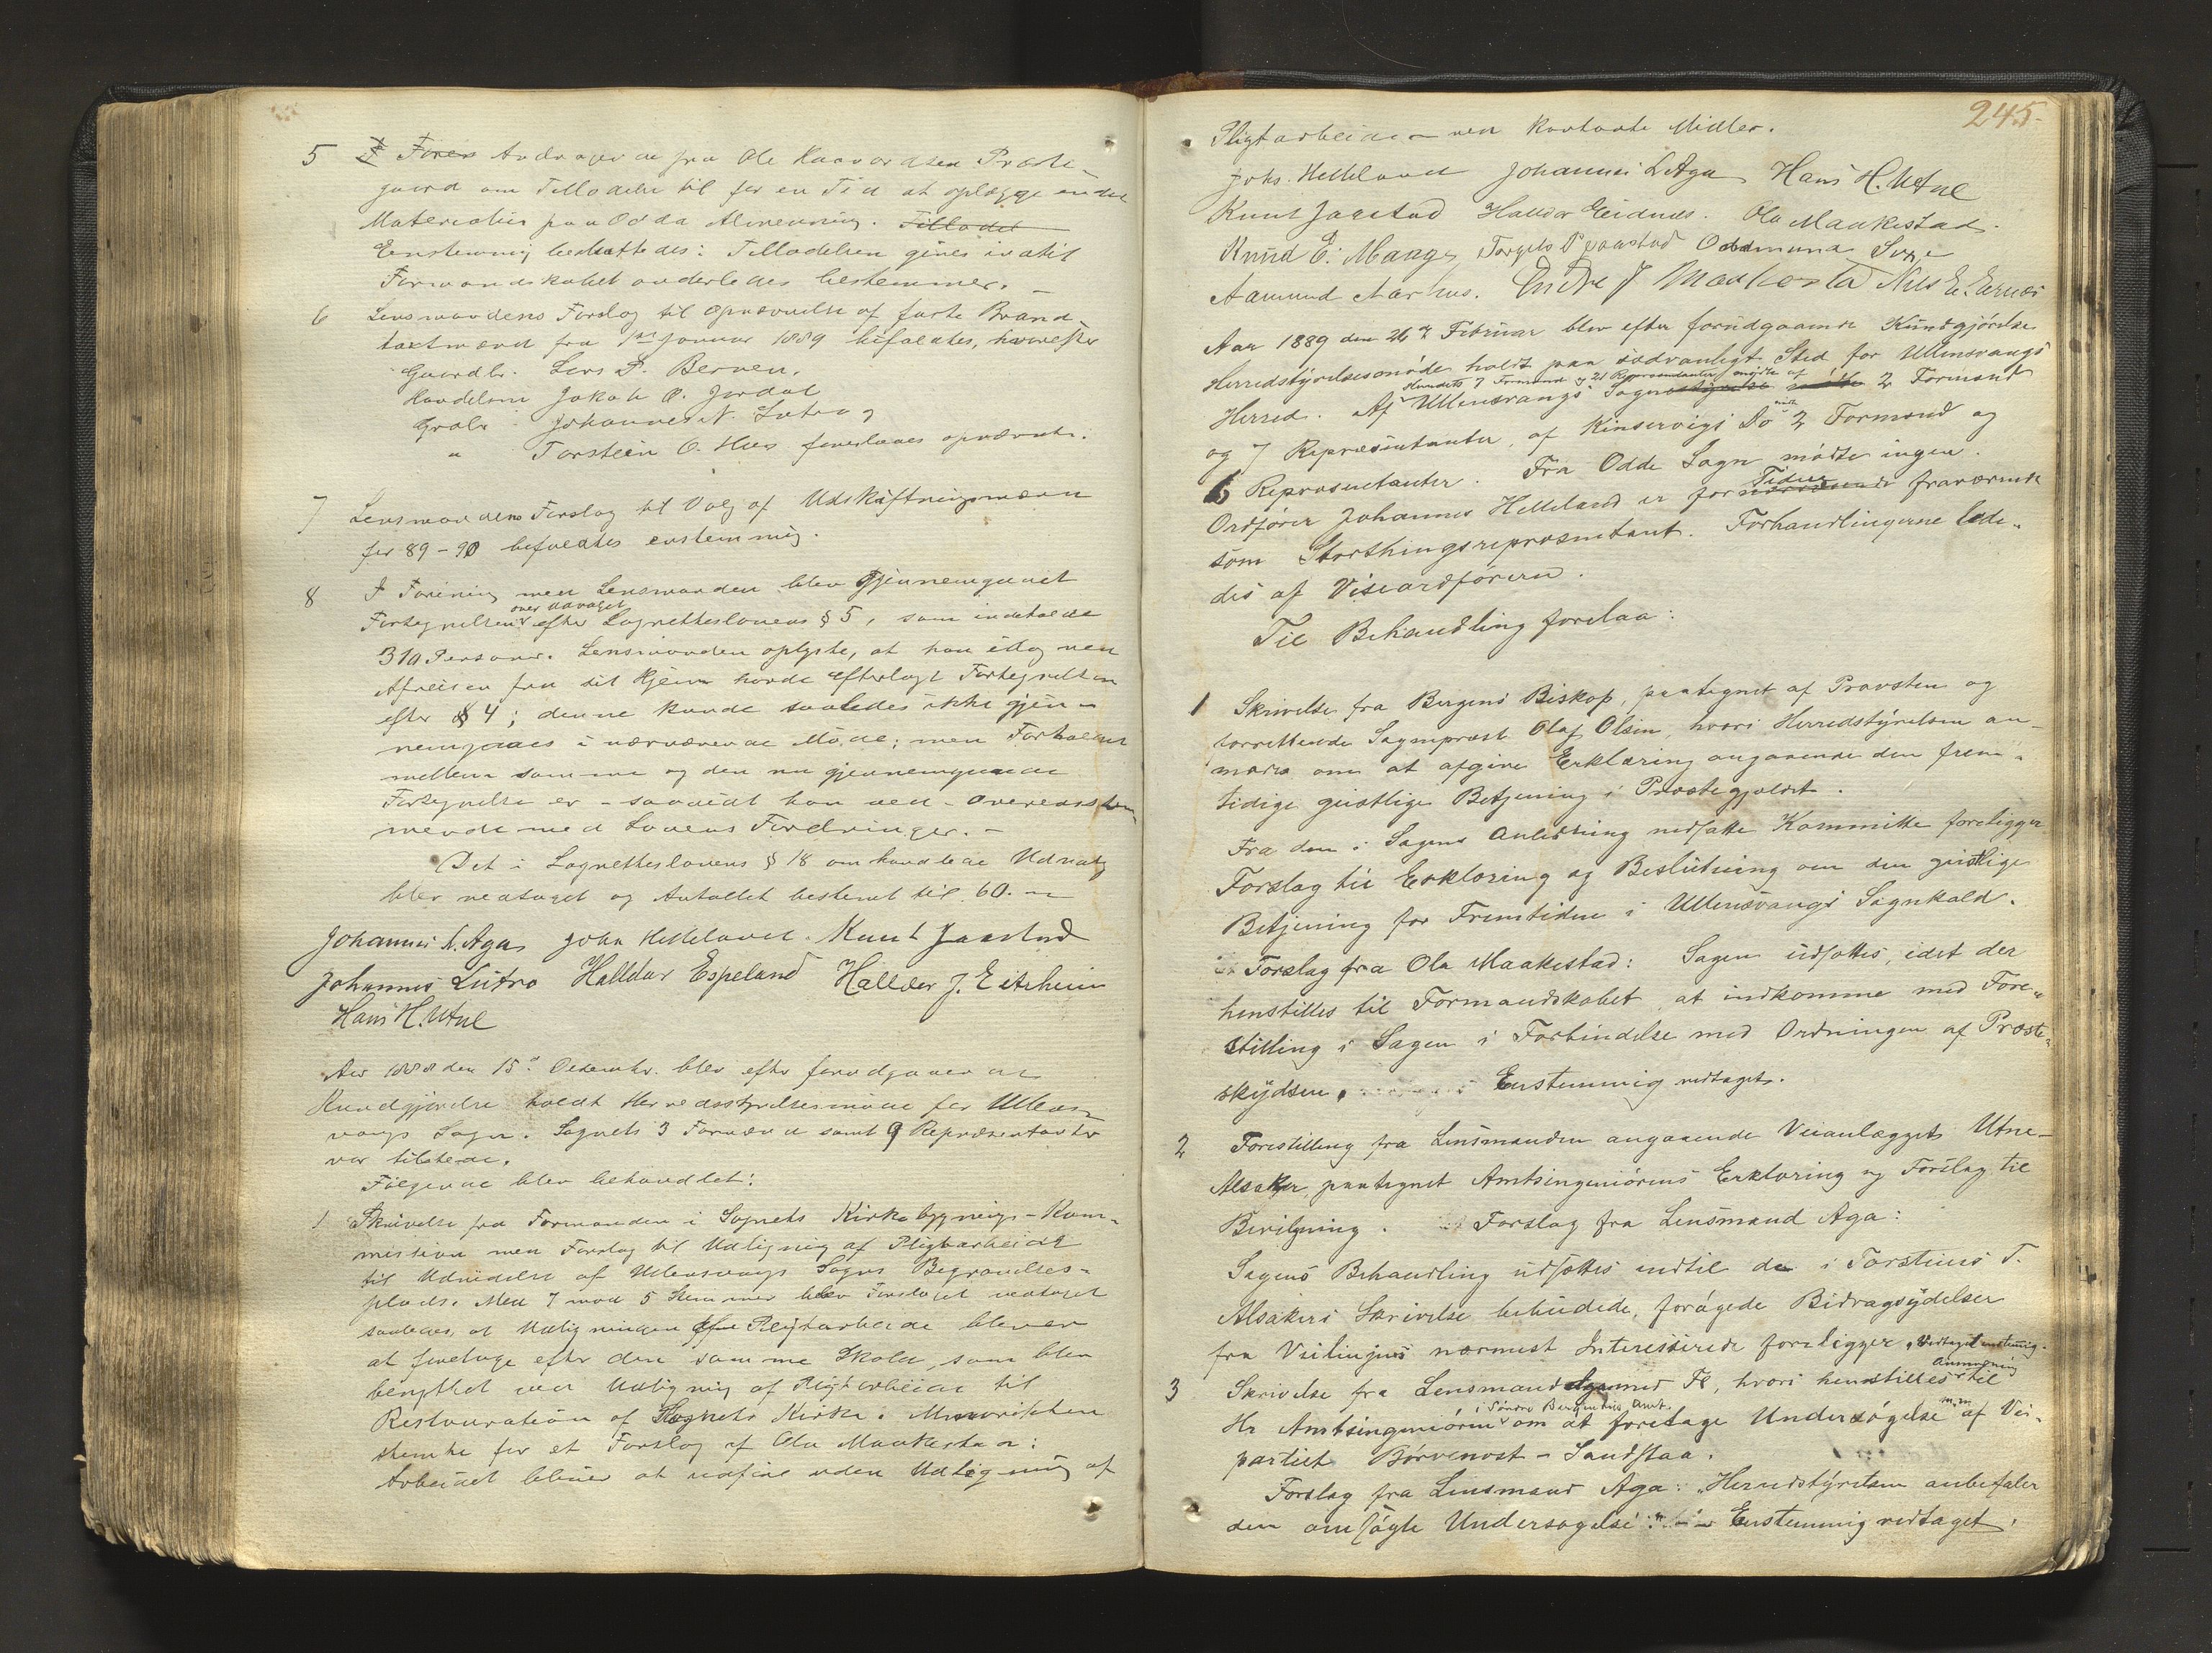 5 Andragende fra Ole Haavardsen Præste-
gaard om Tilladelse til for en Tid at oplægge endel
Materialier paa Odda Almenning. Tilladel
Enstemmig besluttedes: Tilladelsen gives indtil
Formandskabet anderledes bestemmer. –
6 Lensmandens Forslag til Opnævnelse af faste Brand-
taxtmænd fra 1ste Januar 1889 bifaldtes, hvorefter
Gaardbr. Lars P. Berven,
Handelsm Jakob O. Jordal
Grdbr Johannes N. Lutro og
" Torstein O. Hus saaledes opnævntes.
7 Lensmandens Forslag til Valg af Udskiftningsmænd
for 89-90 bifaldtes enstemmig.
8 I Forening med Lensmanden blev gjennemgaaet
over Udvalget
Fortegnelsen efter Lagretteslovens § 5, som indeholdt
310 Personer. Lensmanden oplyste, at han idag ved
Afreisen fra sit Hjem havde efterlagt Fortegnelsen
efter § 4; denne kunde saaledes ikke gjen-
nemgaaes i nærværende Møde; men Forholdet
mellem samme og den nu gjennemgaaede
Fortegnelse er – saavidt han ved – overensstem-
mende med Lovens Fordringer. –
Det i Lagretteslovens § 18 omhandlede Udvalg
blev vedtaget og Antallet bestemt til 60. –
Johannes L. Aga Johs Helleland. Knut Jaastad
Johannes Lutro Halldor Espeland Halldor J. Eitrheim
Hans H. Utne
Aar 1888 den 15de Desember blev efter forudgaaende
Kundgjørelse holdt Herredsstyrelsesmøde for Ullens-
vangs Sogn. Sognets 3 Formænd samt 9 Repræsentanter
var tilstede.
Følgende blev behandlet:
1 Skrivelse fra Formanden i Sognets Kirkebygnings-Kom-
mission med Forslag til Udligning af Pligtarbeide
til Udvidelse af Ullensvangs Sogns Begravelses-
plads. Med 7 mod 5 Stemmer blev Forslaget vedtaget
saaledes, at Udligningen af Pligtarbeide bliver
at foretage efter den samme Skala, som blev
benyttet ved Udligning af Pligtarbeide til
Restauration af Sognets Kirke. Minoriteten
stemte for et Forslag af Ola Maakestad:
Arbeidet bliver at udføre uden Udligning af
245.
Pligtarbeide – ved kontante Midler.
Johs. Helleland Johannes L Aga Hans H. Utne
Knut Jaastad Halldor Eidnes. Ola Maakestad.
Knud E. Mauge, Torgils Oddmund
Aamund Aarhus. Endre J Maakestad Nils E.
Aar 1889 den 26de Februar blev efter forudgaaende Kundgjørelse
Herredstyrelsesmøde holdt paa sædvanligt Sted for Ullensvangs
Herredets 7 Formænd og 21 Repræsentanter mødte af
Herred. Af Ullensvangs Sogn 2 Formænd
og 7 Repræsentanter, af Kinservigs Do mødte 2 Formænd og
6 Repræsentanter. Fra Odde Sogn mødte ingen.
Ordfører Johannes Helleland er for Tiden fraværende
som Storthingsrepræsentant. Forhandlingerne lede-
des af Viseordføreren.
Til Behandling forelaa:
1 Skrivelse fra Bergens Biskop, paategnet af Provsten og
forrettende Sogneprest Olaf Olsen, hvori Herredstyrelsen an-
modes om at afgive Erklæring angaaende den frem-
tidige geistlige Betjening i Præstegjældet.
Fra den i Sagens Anledning nedsatte Kommitte foreligger
Forslag til Erklæring og Beslutning om den geistlige
Betjening for Fremtiden i Ullensvangs Sognkald.
Forslag fra Ola Maakestad: Sagen udsættes, idet der
henstilles til Formandskabet at indkomme med Fore-
stilling i Sagen i Forbindelse med Ordningen af Præste-
skydsen. Enstemmig vedtaget.
2 Forestilling fra Lensmanden angaaende Veianlægget Utne-
Alsaker, paategnet Amtsingeniørens Erklæring og Forslag til
Bevilgning. Forslag fra Lensmand Aga:
Sagens Behandling udsættes indtil de i Torsteins T.
Alsakers Skrivelse bebudede, forøgede Bidragsydelser
fra Veilinjens nærmest Interesserede foreligger. Vedtaget enstemmig.
Anmodning
3 Skrivelse fra Lensmand Fl, hvori henstilles til
i Søndre Bergenhus Amt. m.m.
Hr Amtsingeniøren om at foretage Undersøgelse af Vei-
partiet Børvenost – Sandstaa.
Forslag fra Lensmand Aga: "Herredstyrelsen anbefaler
den omsøgte Undersøgelse." – Enstemmig vedtaget.